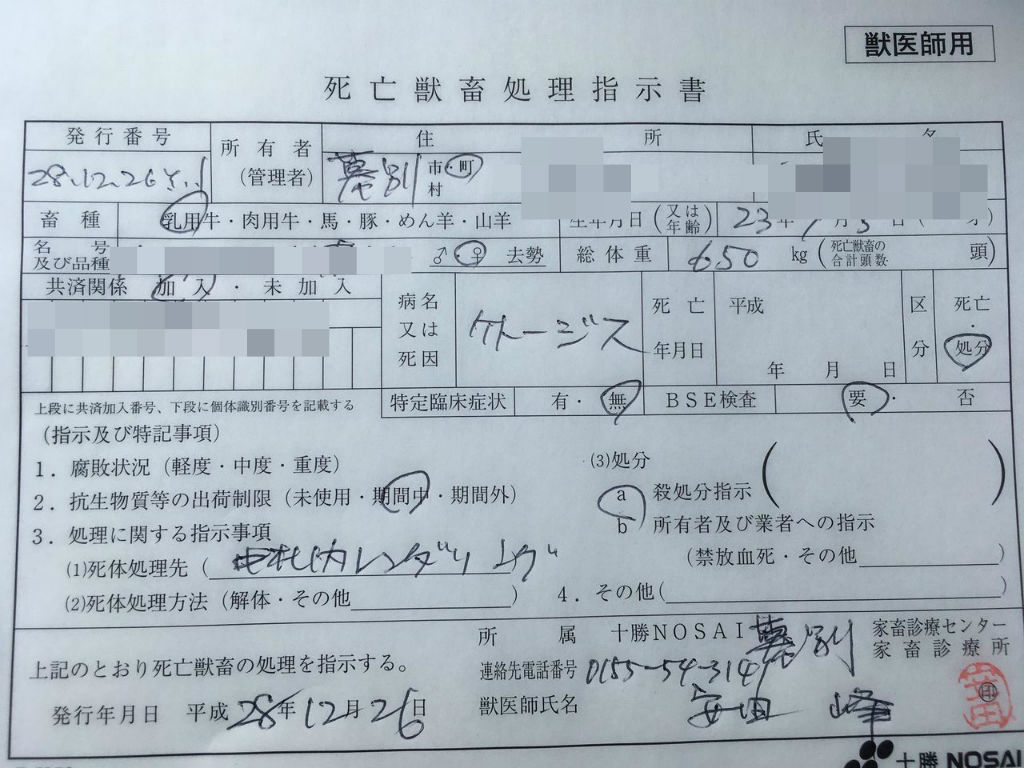 獣医師用
死亡獣畜処理指示書
発行番号
所有者
(管理者)
住 所
氏 名
28.12.26
幕別 市・町
村
畜種
乳用牛・肉用牛・馬・豚・めん羊・山羊
生年月日 (又は年齢)
23年 月 日 ( 才)
名号
及び品種
♂・♀ 去勢
総体重
650 kg
(死亡獣畜の合計頭数 頭)
共済関係 加入・未加入
病名
又は
死因
ケトージス
死亡
年月日
平成
年 月 日
区分
死亡・処分
上段に共済加入番号、下段に個体識別番号を記載する
特定臨床症状 有・無
BSE検査 要・否
(指示及び特記事項)
1.腐敗状況(軽度・中度・重度)
2.抗生物質等の出荷制限(未使用・期間中・期間外)
3.処理に関する指示事項
(1)死体処理先( 札内レンダリング
(2)死体処理方法(解体・その他 )
(3)処分
a 殺処分指示( )
b 所有者及び業者への指示
(禁放血死・その他 )
4.その他( )
上記のとおり死亡獣畜の処理を指示する。
発行年月日 平成28年12月26日
所属 十勝NOSAI 幕別 家畜診療センター
家畜診療所
連絡先電話番号 0155-54-314
獣医師氏名 安田 峰
印
十勝NOSAI